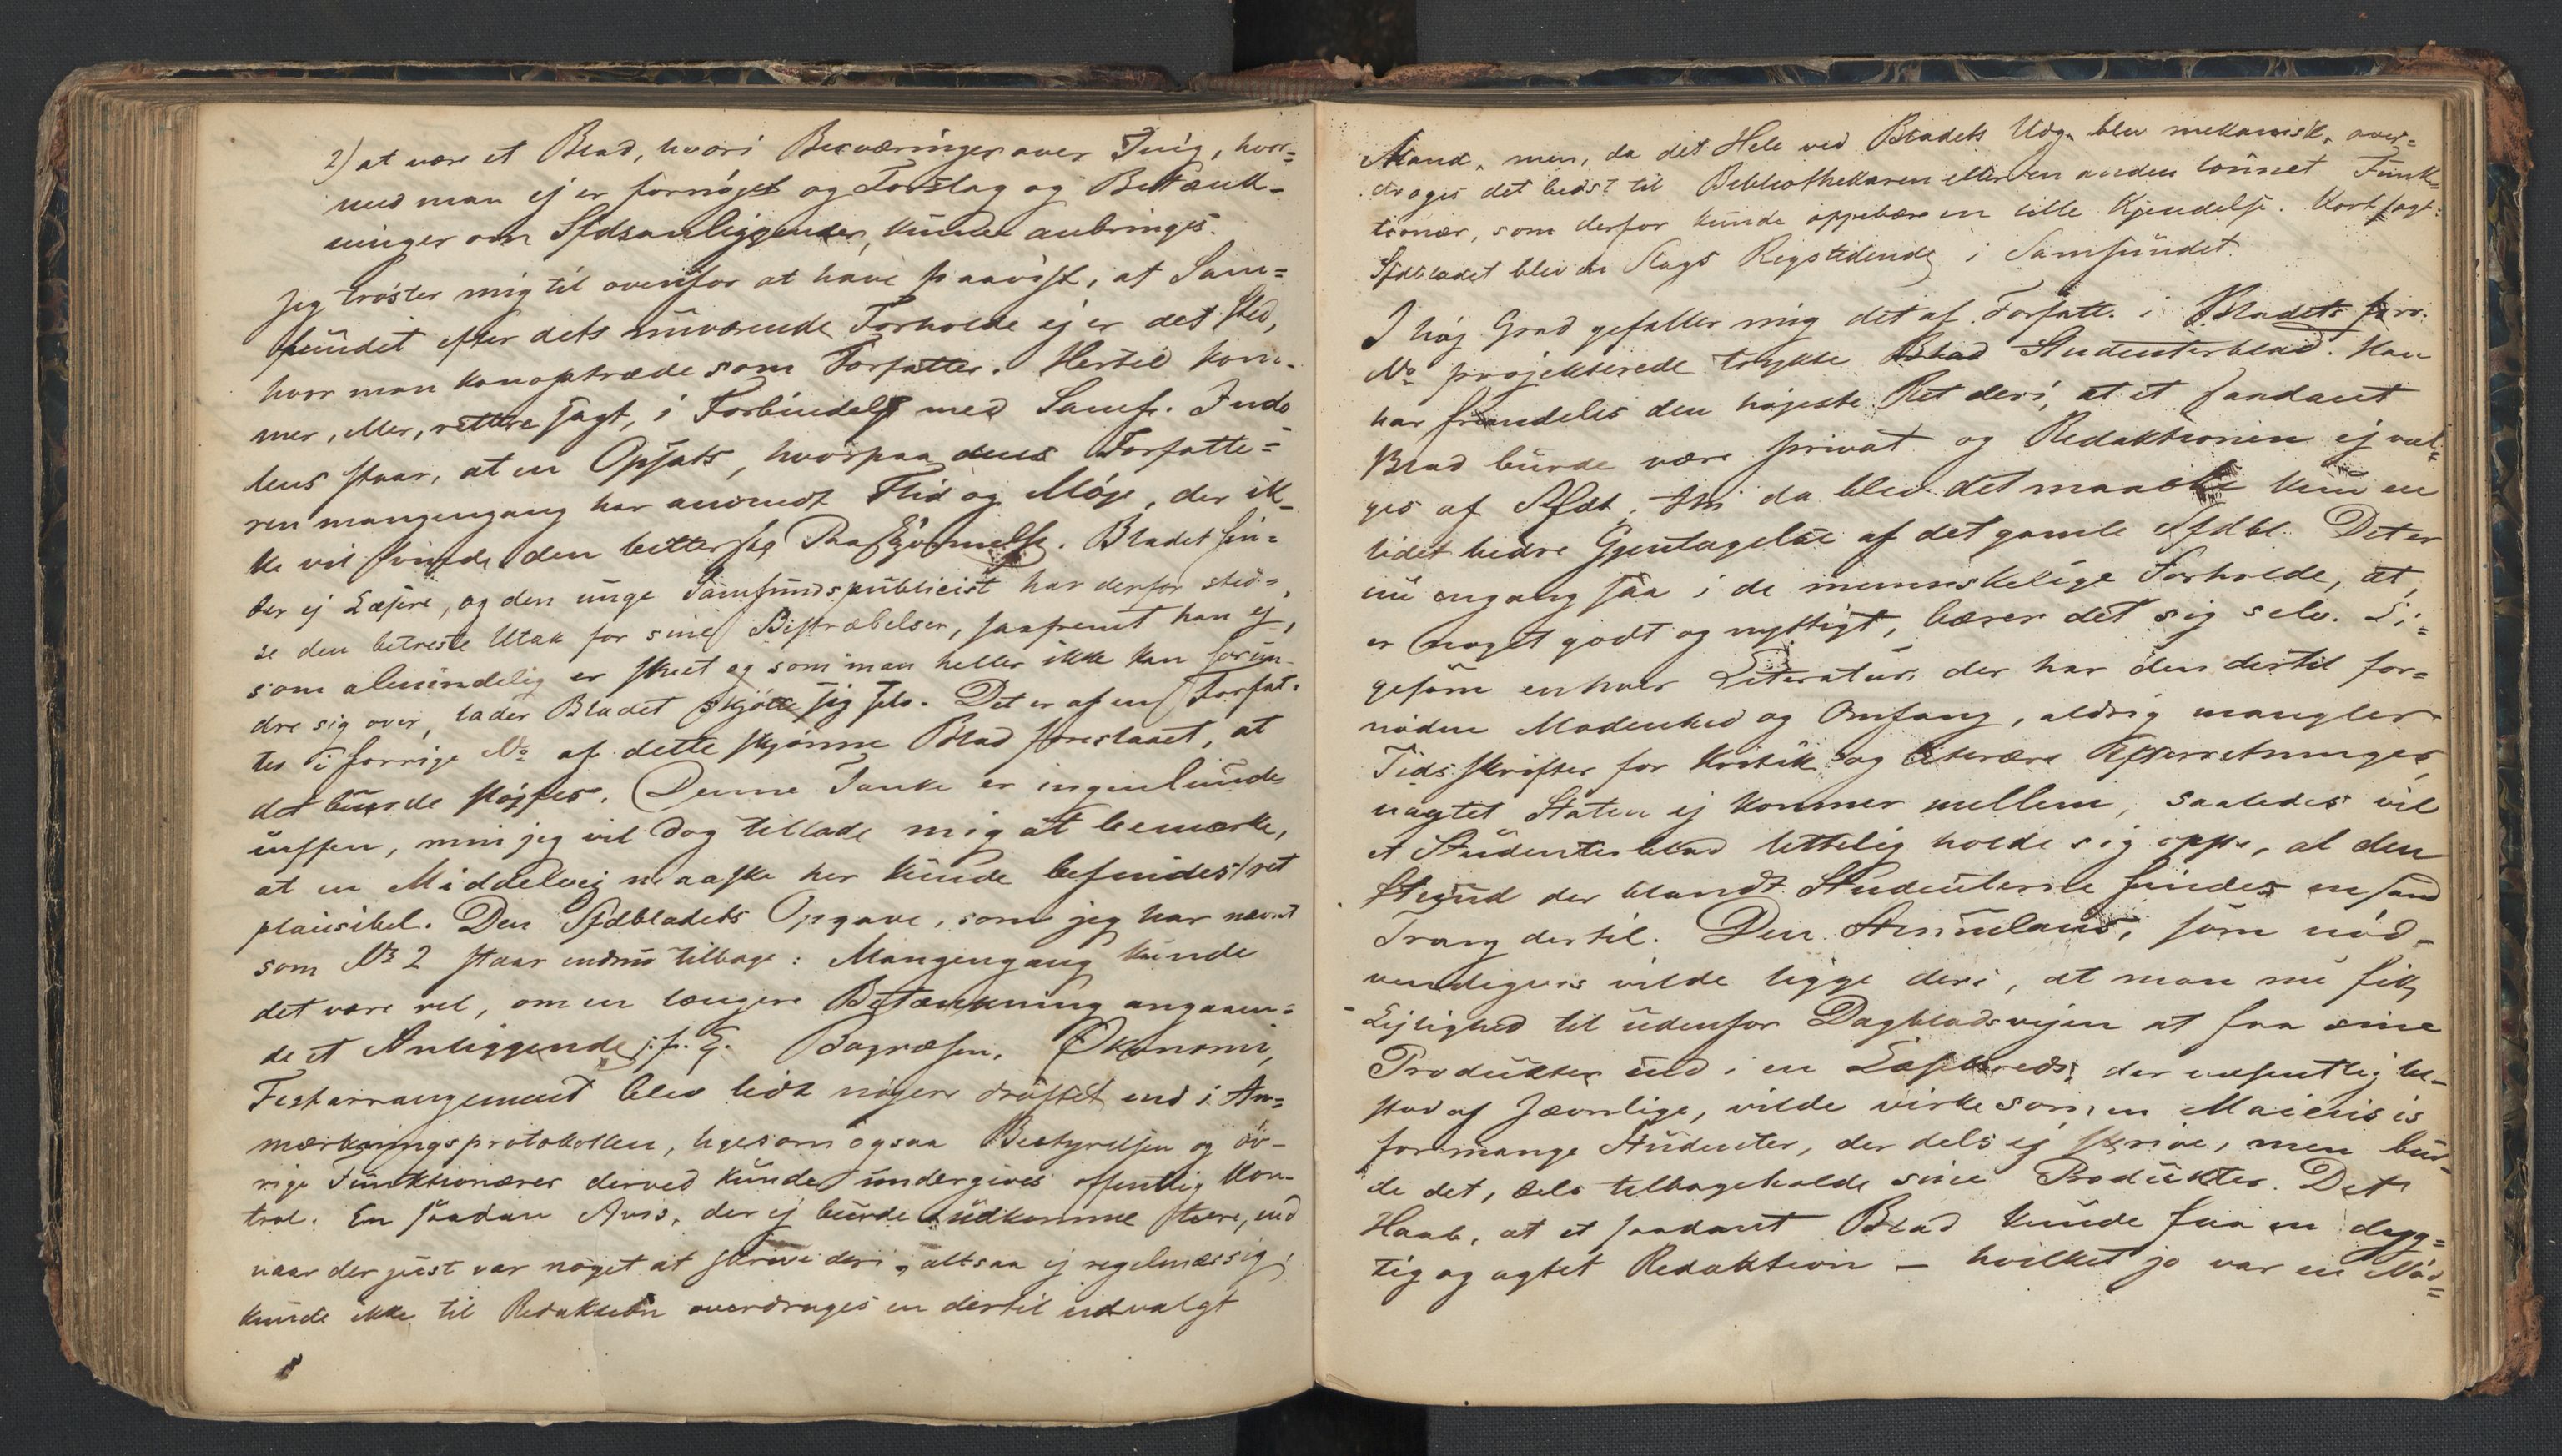 2) at være et Blad, hvori Besværinger over Ting, hvor=
med man ej er fornøjet og Forslag og Betænk-
ninger om Sfdsanliggender, kunne anbringes.
Jeg trøster mig til ovenfor at have paavist, at Sam=
fundet efter dets nuværende Forholde ej er det Sted,
hvor man kan optræde som Forfatter. Hertil kom-
mer, eller, rettere sagt, i Forbindelse med Samf. Indo
lens staar, at en Opsats, hvorpaa dens Forfatte=
ren mangengang har anvendt Flid og Møje, der ik-
ke vil finde den betterste Paaskjønnelse. Bladet fin=
der ej Læsere, og den unge Samfundspublicist har derfor sted=
se den betreste Utak for sine Bestræbelser, saafremt han ej,
som almindelig er skeet og som man heller ikke kan forun-
dre sig over, lader Bladet skjøtte sig selv. Det er af en Forfat=
ter i forrige No af dette skjønne Blad foreslaaet, at
det burde sløjfes. Denne Tanke er ingenlunde
uffen, men jeg vil dog tillade mig at bemærke,
at en Middelvej maaske her kunde befindes ret
plausibel. Den Sfdbladets Opgave, som jeg har nævnt
som No 2 staar endnu tilbage: Mangengang kunde
det være vel, om en længere Betænkning angaaen=
de et Anliggende j.f. E. Bogvæsen, Økonomi,
Festarrangement blev lidt nøjere drøftet end i An=
mærkningsprotokollen, ligesom ogsaa Bestyrelsen og øv-
rige Funktionærer derved kunde undergives offentlig Kon-
trol. En saadan Avis, der ej burde udkomme flere, end
naar der just var noget at skrive deri, altsaa ej regelmæssig,
kunde ikke til Redaktion overdrages en dertil udvalgt
Mand, men, da det Hele ved Bladets Udg. blev mekanisk, over=
droges det bedst til Bibliothekaren eller en anden lønnet Funk=
tionær, som derfor kunde oppebære en lille Kjendelse. Kort sagt:
Sfdbladet blev en Slags Rigstidende i Samfundet.
I høj Grad gefaller mig det af Forfatt. i Bladets forr.
No projekterede trykte Blad Studenterblad. Han
har fremdeles den højeste Ret deri, at et saadant
Blad burde være privat og Redaktionen ej væl=
ges af Sfdt, thi da blev det maaske kun en
lidet bedre Gjentagelse af det gamle Sfdbl. Det er
nu engang saa i de menneskelige Forholde, at,
er noget godt og nyttigt, bærer det sig selv. Li=
gesom enhver Literatur, der har den dertil for=
nødne Modenhed og Omfang, aldrig mangler
Tidsskrifter for Kritik og literære Efterretninger,
uagtet Staten ej kommer mellem, saaledes vil
et Studenterblad lettelig holde sig oppe, al den
Stund der blandt Studenterne findes en sand
Trang dertil. Den Stimulans, som nød-
vendigvis vilde ligge deri, at man nu fik
Lejlighed til udenfor Dagbladsvejen at faa sine
Produkter ud i en Læsekreds, der væsentlig be-
stod af Jævnlige, vilde virke som en Maieusis
for mange Studenter, der dels ej skrive, men bur-
de det, dels tilbageholde sine Produkter. Det
Haab, at et saadant Blad kunde faa en dyg=
tig og agtet Redaktion – hvilket jo var en Nød=